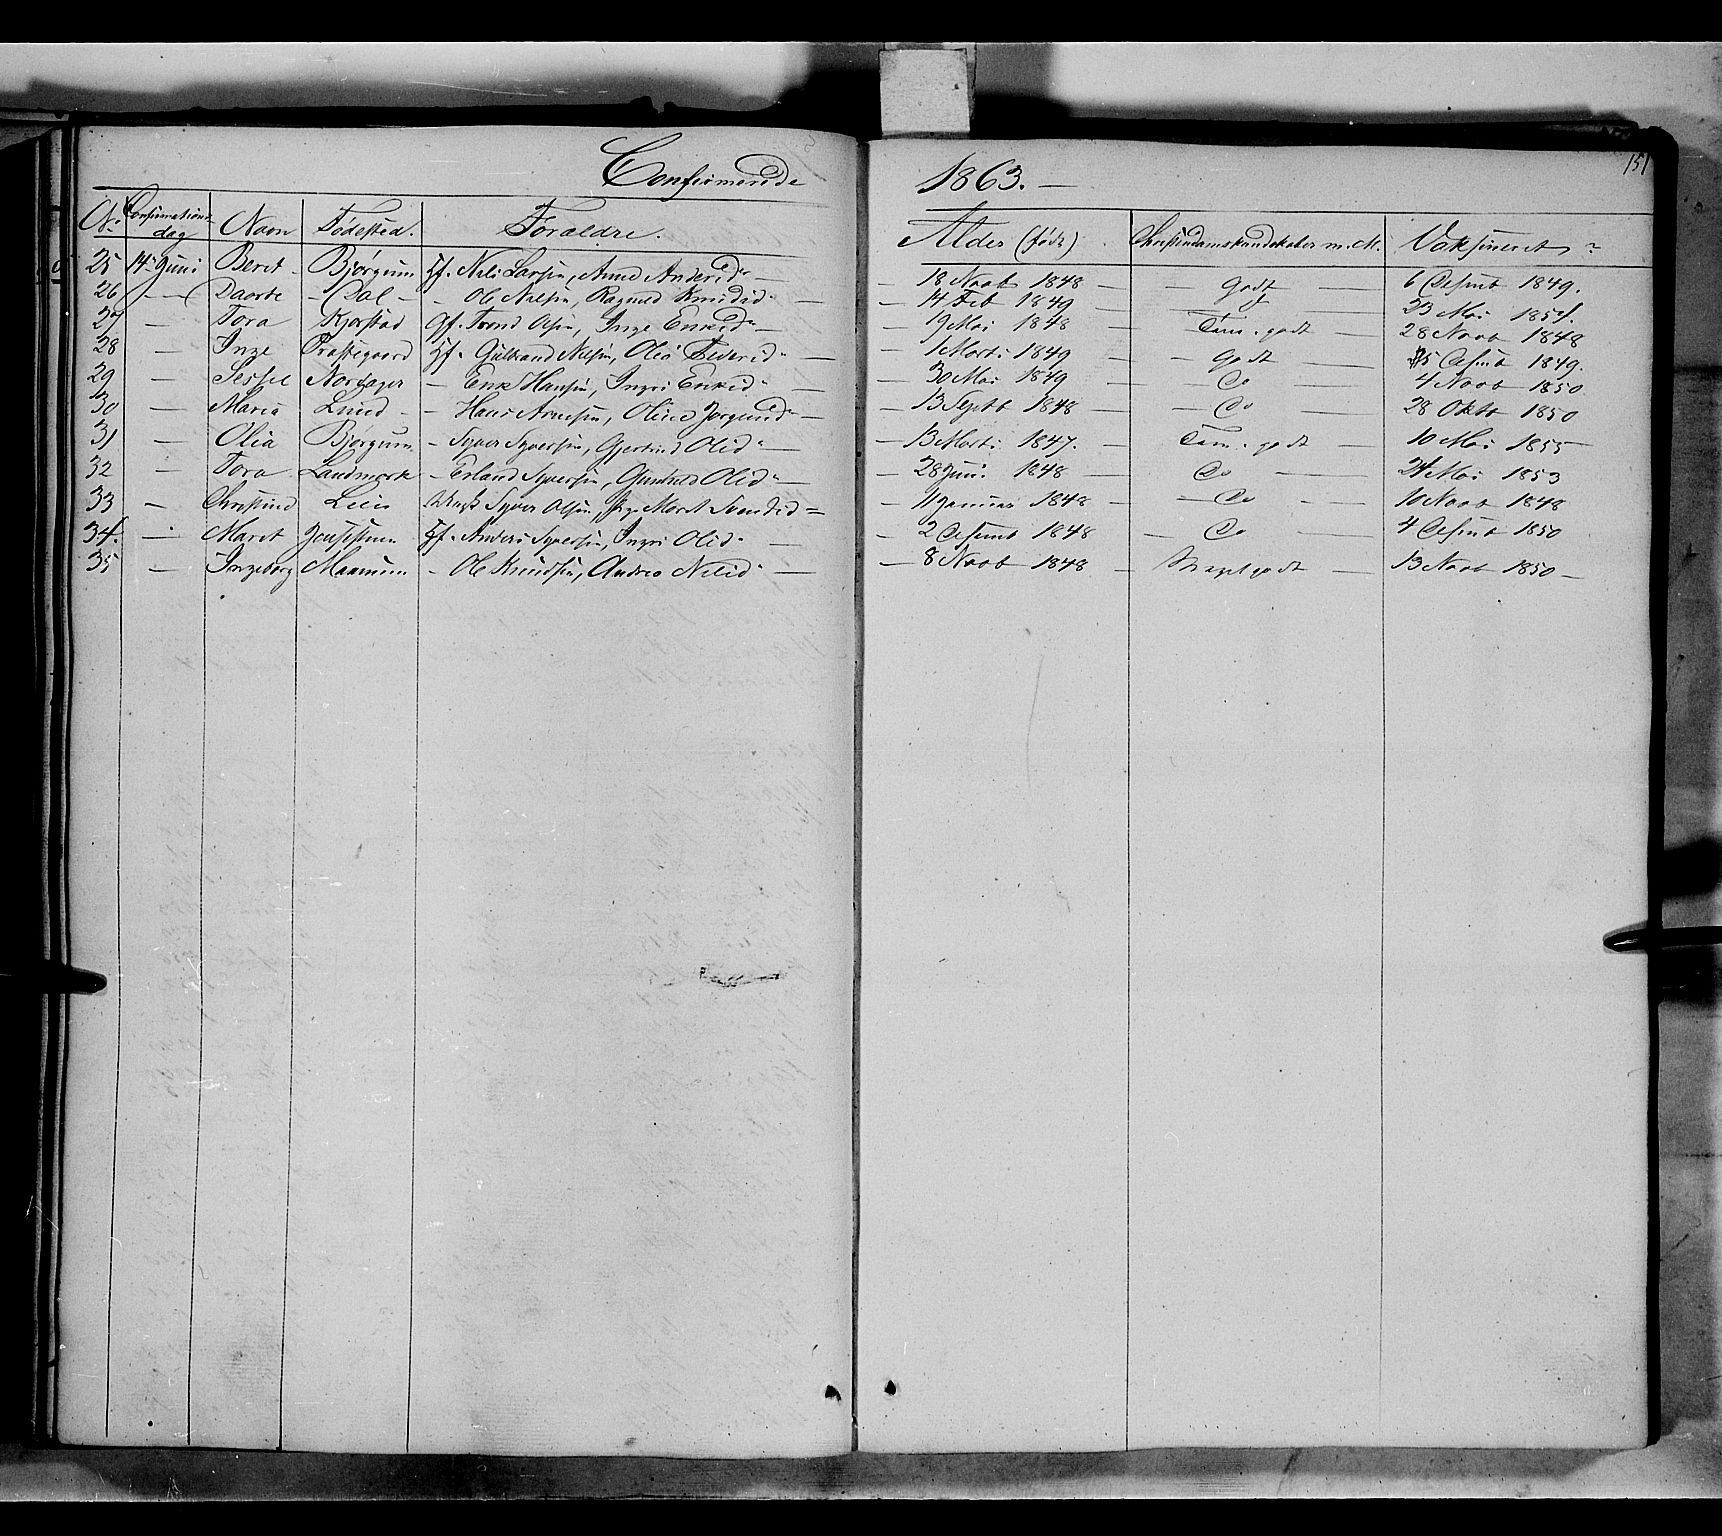 151
Confirmerede 1863. —
No Confirmations dag Navn Fødested. Foræld​re. Alder (født) Christendomskundskaber m. M. Vaksineret
25 14 Juni Beret Bjørgum Gf. Nils Larsen, Anne Andersd. — 18 Novb 1848 — godt — 6 Desmb 1849.
26 — Dorte — Dal — - Ole Nilsen, Ragnild Knudsd. — 14 Feb 1849 — — 23 Mai 1854.
27 — Tora Kjorstad Gf. Trond Olsen, Inge Eriksd. — 19 Mai 1848 — Tem. godt — 28 Novb 1848
28 — Inge Præstegaard Gf. Gulbrand Nilsen, Olia Pedersd. — 1 Marts 1849 — godt — 15 Desmb 1849.
29 — Sessel Nordager - Erik Hansen, Ingri Eriksd. — 30 Mai 1849 — Do — 4 Novb 1850
30 — Maria Lund - Hans Arnesen, Oline Jørgensd. — 13 Septb 1848 — Do — 28 Oktb 1850
31 — Olia Bjørgum - Syver Syversen, Gjertrud Olsd. — 13 Marts 1847. — Tem. godt — 10 Mai 1855
32 — Tora Landmark - Erland Syversen, Gunhild Olsd. — 28 Juni 1848 — Do — 24 Mai 1853
33 — Christine Lien Syver Olsen, Marit Svendsd — 11 Januar 1848 — Do — 10 Novb 1848
34. — Marit Gf. Anders Syversen, Ingri Olsd. — 2 Desmb 1848 — Do — 4 Desmb 1850
35 — Ingeborg Maanum - Ole Knudsen, Andrea Nilsd. — 8 Novb 1848 — Megetgodt — 13 Novb 1850 —